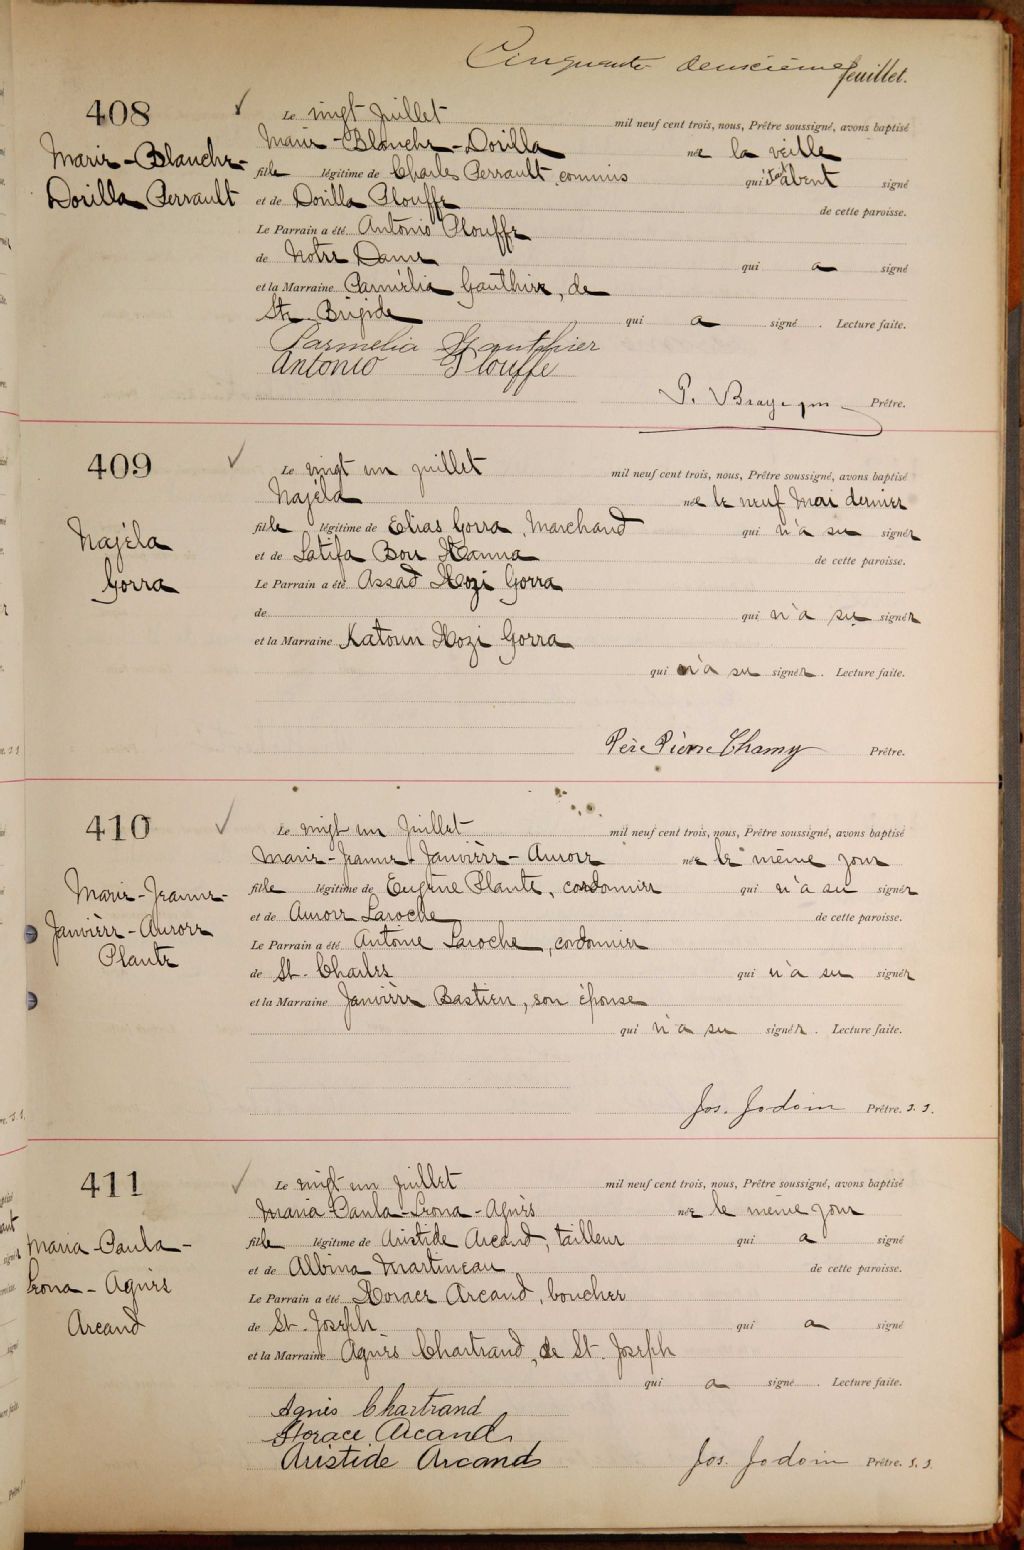 Cinquante deuxième feuillet.
408
Marie-Blanche-
Dorilla Perrault
Le vingt Juillet mil neuf cent trois, nous, Prêtre soussigné, avons baptisé
Marie-Blanche-Dorilla née la veille
fille légitime de Charles Perrault, commis qui était absent signé
et de Dorilla Plouffe de cette paroisse.
Le Parrain a été Antonio Plouffe
de Notre Dame qui a signé
et la Marraine Parmélia Gauthier, de
Ste Brigide qui a signé. Lecture faite.
Parmelia Gauthier
Antonio Plouffe
P. Prêtre.
409
Najéla
Gorra
Le vingt un juillet mil neuf cent trois, nous, Prêtre soussigné, avons baptisé
Najéla née le neuf Mai dernier
fille légitime de Elias Gorra, Marchand qui n'a su signer
et de Latifa Bou Hanna de cette paroisse.
Le Parrain a été Assad Hozi Gorra
de qui n'a su signer
et la Marraine Katoun Hozi Gorra
qui n'a su signer. Lecture faite.
Père Pierre Chamy Prêtre.
410
Marie-Jeanne-
Janvière-Aurore
Plante
Le vingt un Juillet mil neuf cent trois, nous, Prêtre soussigné, avons baptisé
Marie-Jeanne-Janvière-Aurore née le même jour
fille légitime de Eugène Plante, cordonnier qui n'a su signer
et de Aurore Laroche de cette paroisse.
Le Parrain a été Antoine Laroche, cordonnier
de St. Charles qui n'a su signer
et la Marraine Janvière Bastien, son épouse
qui n'a su signer. Lecture faite.
Jos. Jodoin Prêtre. S. S.
411
Maria-Paula-
Leona-Agnès
Arcand
Le vingt un juillet mil neuf cent trois, nous, Prêtre soussigné, avons baptisé
Maria-Paula-Leona-Agnès née le même jour
fille légitime de Aristide Arcand, tailleur qui a signé
et de Albina Martineau de cette paroisse.
Le Parrain a été Horace Arcand, boucher
de St. Joseph qui a signé
et la Marraine Agnès Chartrand, de St. Joseph
qui a signé. Lecture faite.
Agnès Chartrand
Horace Arcand
Aristide Arcand
Jos. Jodoin Prêtre. S. S.